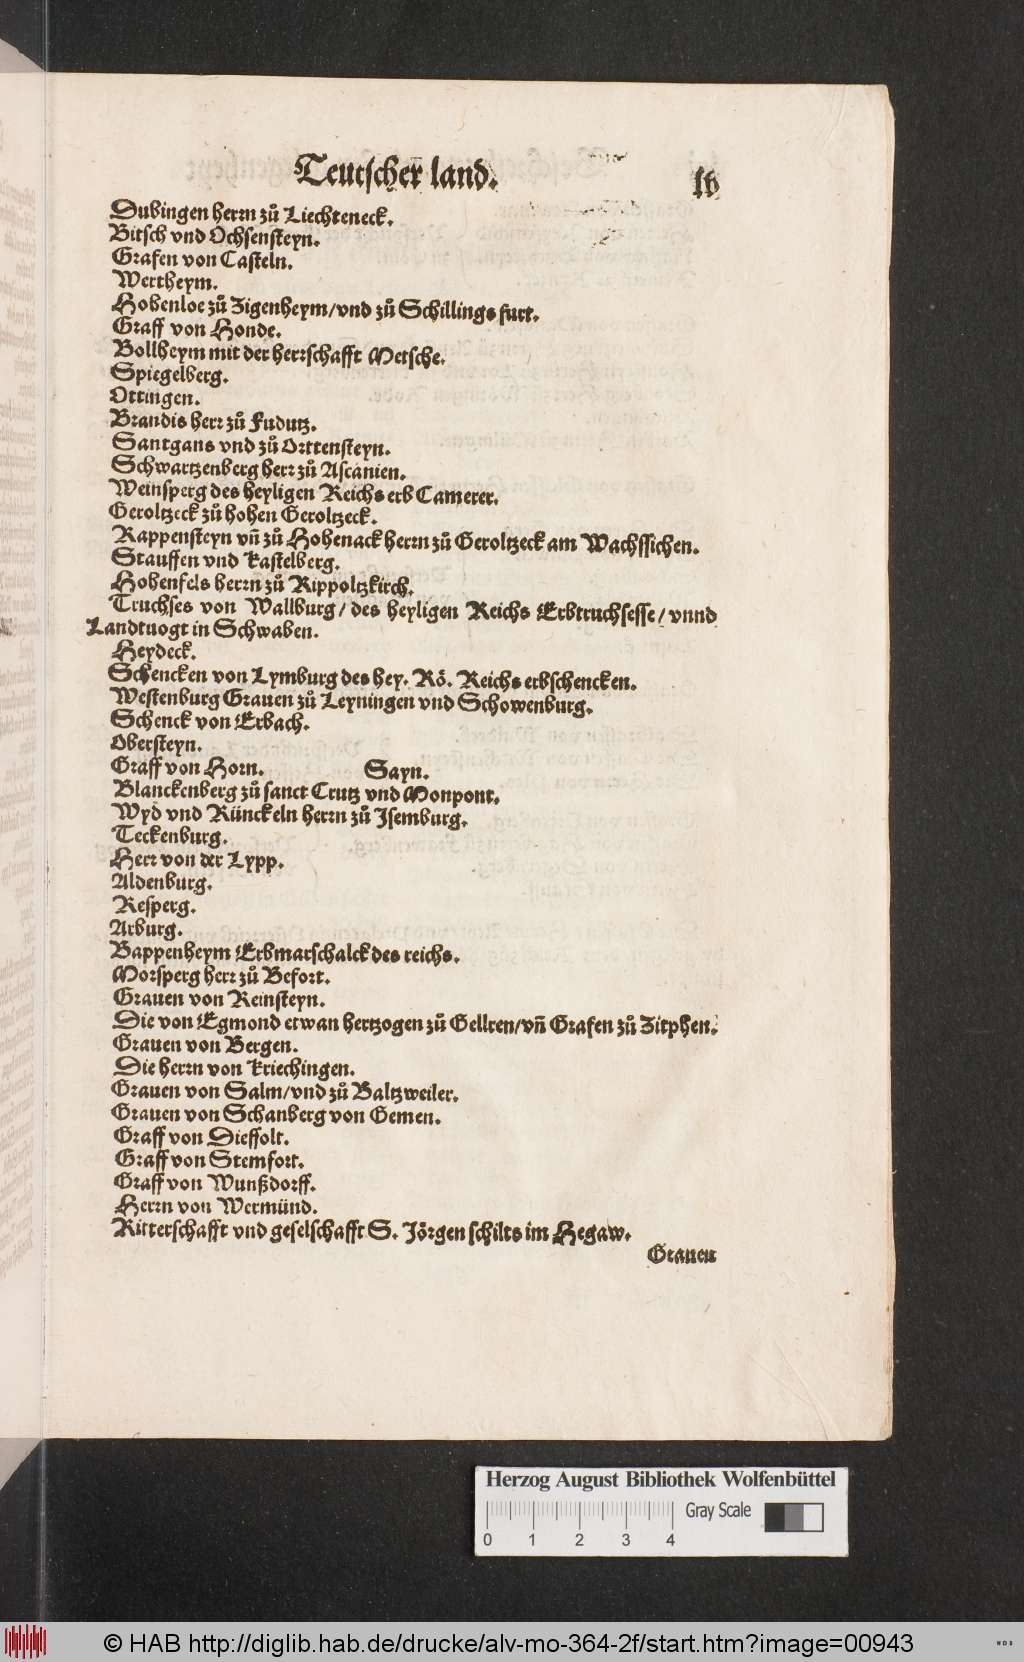 Teutscher̃ land.
16
Dubingen herrn zů Liechteneck.
Bitsch vnd Ochsensteyn.
Grafen von Casteln.
Wertheym.
Hohenloe zů Zigenheym/vnd zů Schillings furt.
Graff von Honde.
Bollheym mit der herrschafft Metsche.
Spiegelberg.
Ottingen.
Brandis herr zů Fudutz.
Santgans vnd zů Orttensteyn.
Schwartzenberg herr zů Ascanien.
Weinsperg des heyligen Reichs erb Camerer.
Geroltzeck zů hohen Geroltzeck.
Rappensteyn vñ zů Hohenack herrn zů Geroltzeck am Wachssichen.
Stauffen vnd Kastelberg.
Hohenfels herrn zů Rippoltzkirch.
Truchses von Wallburg/ des heyligen Reichs Erbtruchsesse/ vnnd
Landtuogt in Schwaben.
Heydeck.
Schencken von Lymburg des hey. Rö. Reichs erbschencken.
Westenburg Grauen zů Leyningen vnd Schowenburg.
Schenck von Erbach.
Obersteyn.
Graff von Horn. Sayn.
Blanckenberg zů sanct Crutz vnd Monpont.
Wyd vnd Rünckeln herrn zů Isemburg.
Teckenburg.
Herr von der Lypp.
Aldenburg.
Resperg.
Arburg.
Bappenheym Erbmarschalck des reichs.
Morsperg herr zů Befort.
Grauen von Reinsteyn.
Die von Egmond etwan hertzogen zů Gellren/vñ Grafen zů Zitphen.
Grauen von Bergen.
Die herrn von Kriechingen.
Grauen von Salm/vnd zů Baltzweiler.
Grauen von Schanberg von Gemen.
Graff von Dieffolt.
Graff von Stemfort.
Graff von Wunßdorff.
Herrn von Wermünd.
Ritterschafft vnd geselschafft S. Jörgen schilts im Hegaw.
Grauen
Herzog August Bibliothek Wolfenbüttel
Gray Scale
0 1 2 3 4
© HAB http://diglib.hab.de/drucke/alv-mo-364-2f/start.htm?image=00943